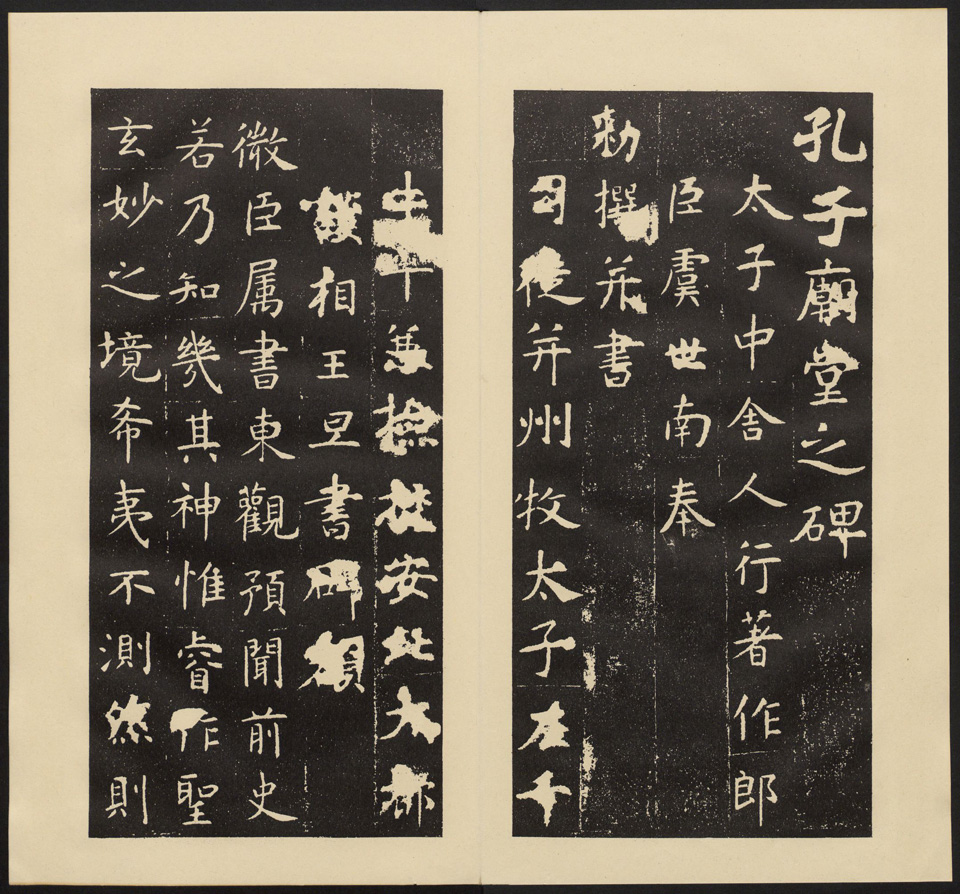 孔子廟堂之碑
太子中舎人行著作郎
臣虞世南奉
勑撰并書
司徒并州牧太子左千
牛率兼撿挍安北大都
護相王旦書碑額
微臣属書東觀預聞前史
若乃知幾其神惟睿作聖
玄妙之境希夷不測然則